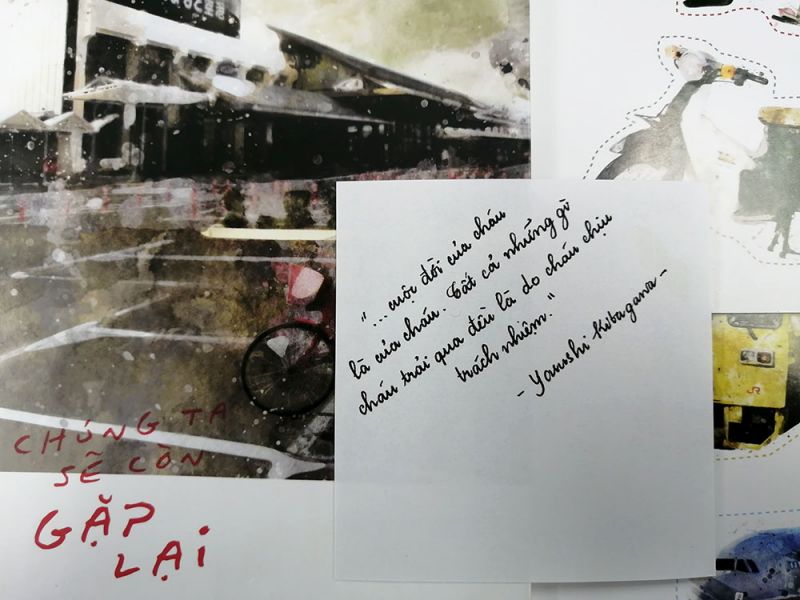 CHÚNG TA
SẼ CÒN
GẶP
LẠI
"... cuộc đời của cháu
là của cháu. Tất cả những gì
cháu trải qua đều là do cháu chịu
trách nhiệm."
- Yasushi Kitagawa -
JR